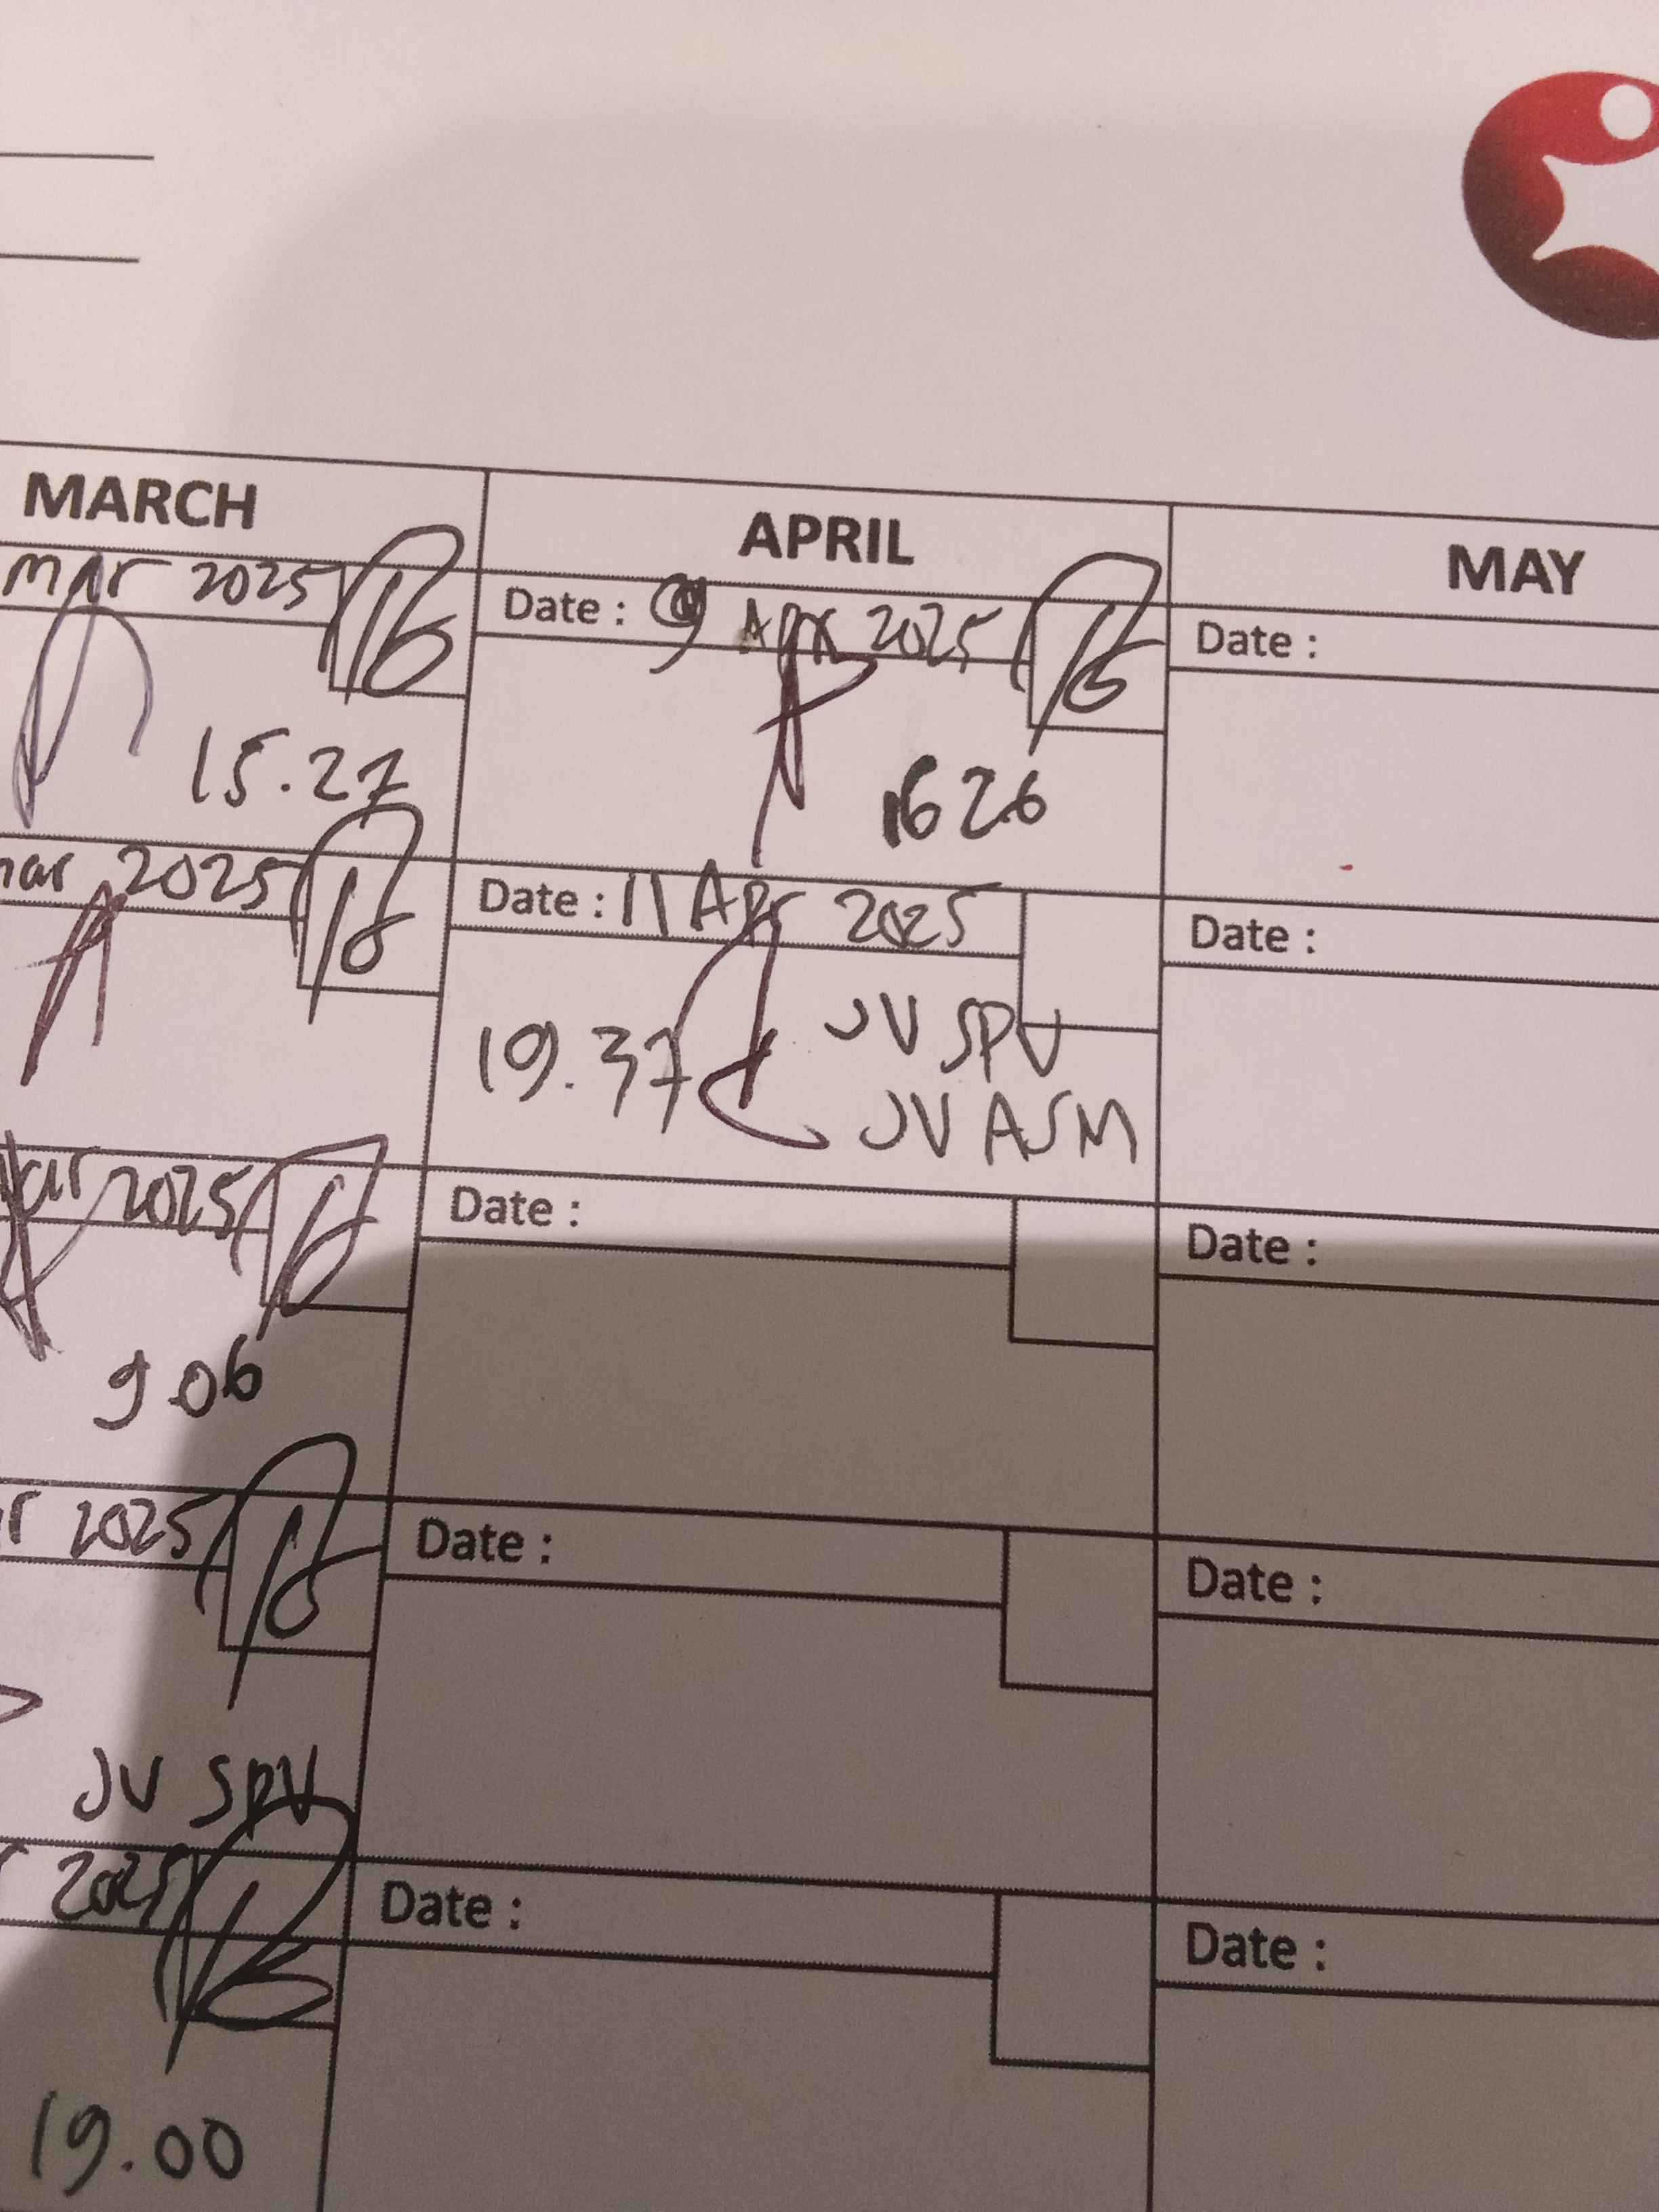 MARCH
APRIL
MAY
mar 2025
Date : 9 Apr 2025
Date :
15.27
1626
mar 2025
Date : 11 Apr 2025
Date :
19.37
JV SPV
JV ASM
Mar 2025
Date :
Date :
9 06
r 2025
Date :
Date :
JV SPV
r 2025
Date :
Date :
19.00